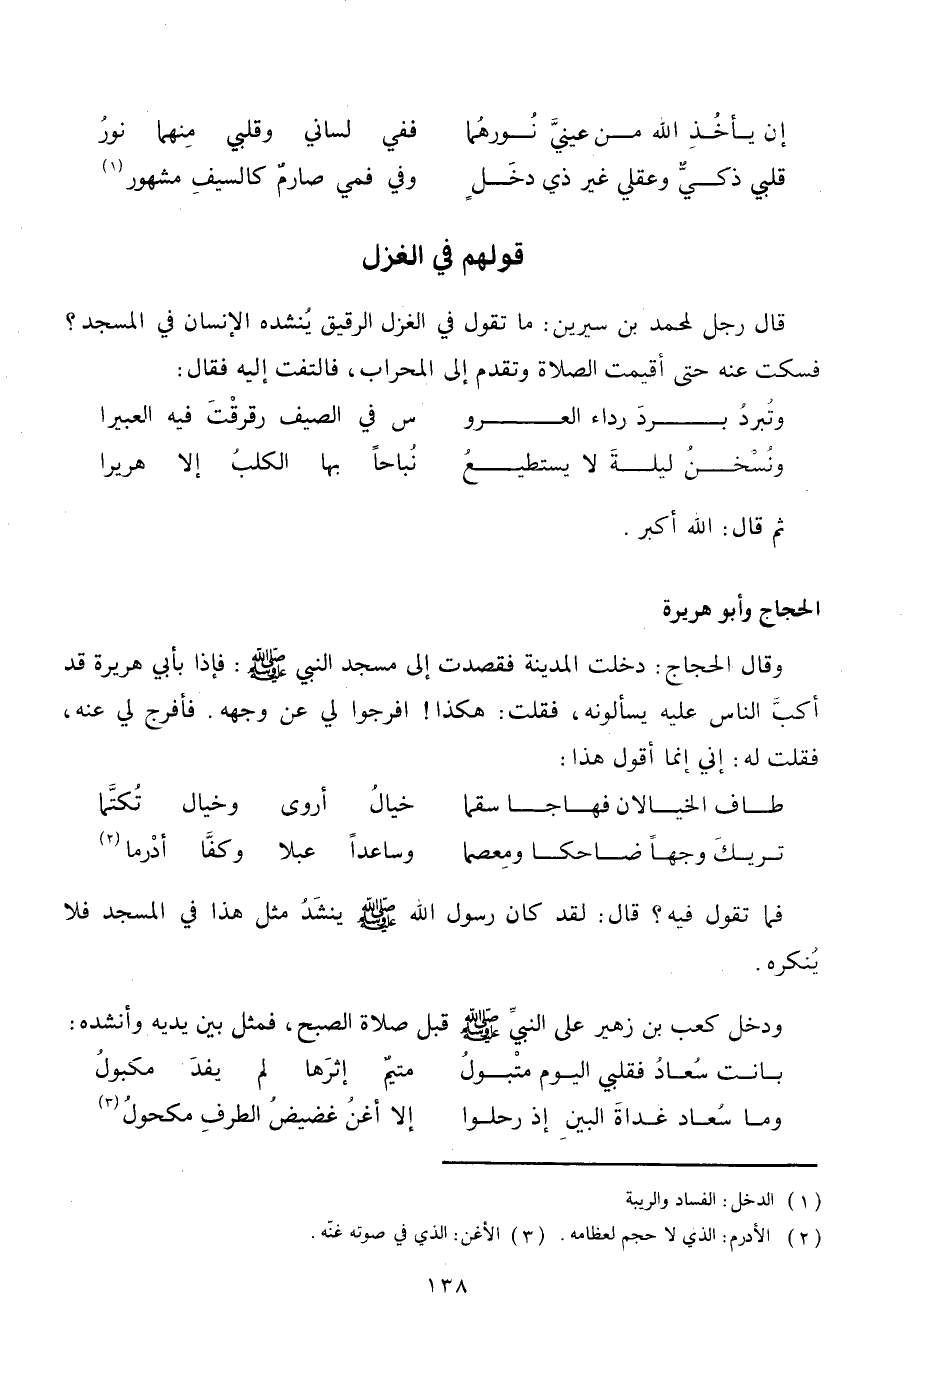 إن يـأخُـذِ الله مـن عينيَّ نُـورهُما ففي لساني وقلبي مِنهما نورُ
قلبي ذكـيٌّ وعقلي غير ذي دخَـلٍ وفي فمي صارمٌ كالسيفِ مشهور (١)
قولهم في الغزل
قال رجل لمحمد بن سيرين: ما تقول في الغزل الرقيق يُنشده الإنسان في المسجد؟
فسكت عنه حتى أقيمت الصلاة وتقدم إلى المحراب، فالتفت إليه فقال:
وتُبردُ بـردَ رداء العـرو س في الصيف رقرقْتَ فيه العبيرا
ونُسْخـنُ ليلـةَ لا يستطيـعُ نُباحاً بها الكلبُ إلا هريرا
ثم قال: الله أكبر .
الحجاج وأبو هريرة
وقال الحجاج: دخلت المدينة فقصدت إلى مسجد النبي ﷺ: فإذا بأبي هريرة قد
أكبَّ الناس عليه يسألونه، فقلت: هكذا! افرجوا لي عن وجهه. فأفرج لي عنه،
فقلت له: إني إنما أقول هذا:
طـاف الخيـالان فهـاجـا سقما خيالُ أروى وخيال تُكتَّما
تـريـكَ وجهـاً ضـاحكـا ومِعصما وساعداً عبلا وكفًّا أدْرما (٢)
فما تقول فيه؟ قال: لقد كان رسول الله ﷺ ينشَدُ مثل هذا في المسجد فلا
يُنكره.
ودخل كعب بن زهير على النبيِّ ﷺ قبل صلاة الصبح، فمثل بين يديه وأنشده:
بـانـت سُعـادُ فقلبي اليـوم متْبـولُ متيمٌ إثرَها لم يفدَ مكبولُ
ومـا سُعـاد غـداةَ البينِ إذ رحلـوا إلا أغنُ غضيضُ الطرفِ مكحولُ (٣)
(١) الدخل: الفساد والريبة
(٢) الأدرم: الذي لا حجم لعظامه. (٣) الأغن: الذي في صوته غنّه.
١٣٨